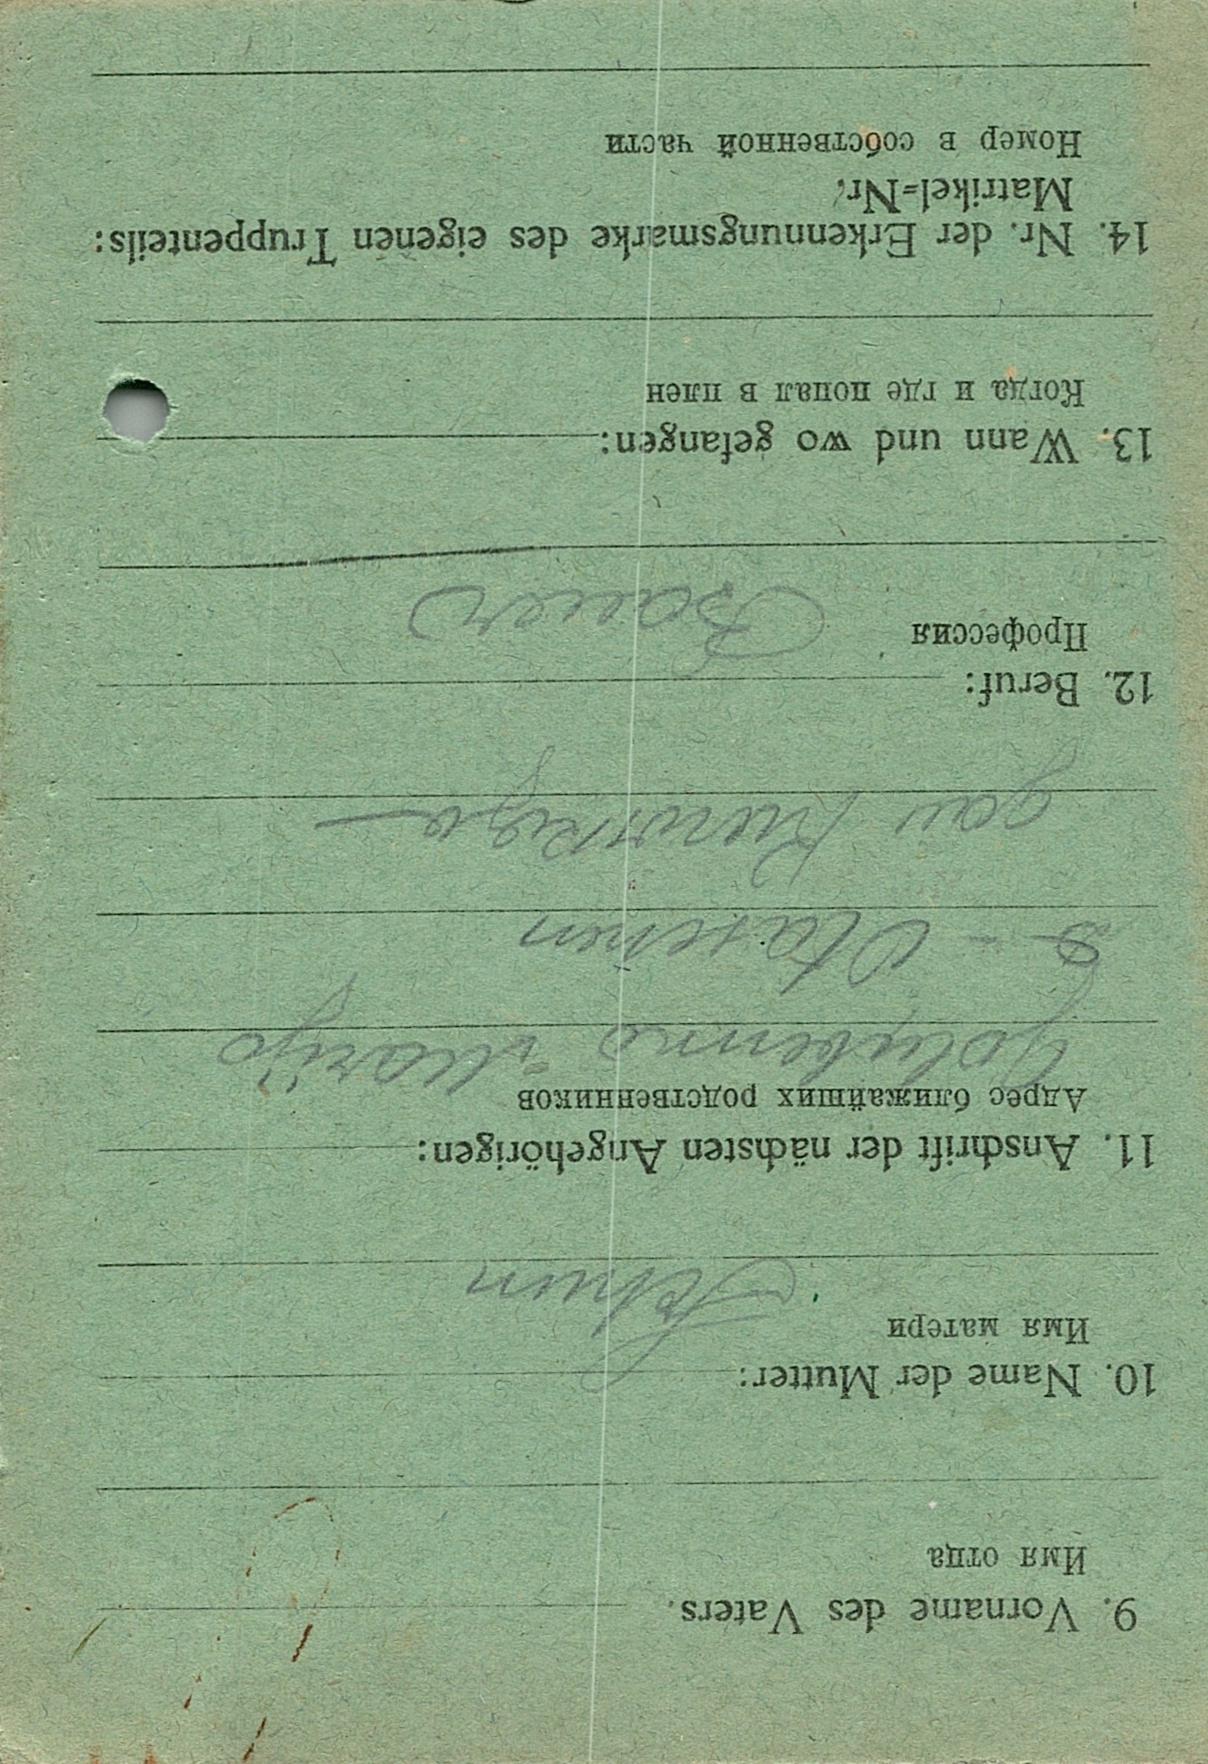 9. Vorname des Vaters.
Имя отца
10. Name der Mutter:
Имя матери
11. Anschrift der nächsten Angehörigen:
Адрес ближайших родственников
12. Beruf:
Профессия
Bauer
13. Wann und wo gefangen:
Когда и где попал в плен
14. Nr. der Erkennungsmarke des eigenen Truppenteils:
Matrikel=Nr.
Номер в собственной части